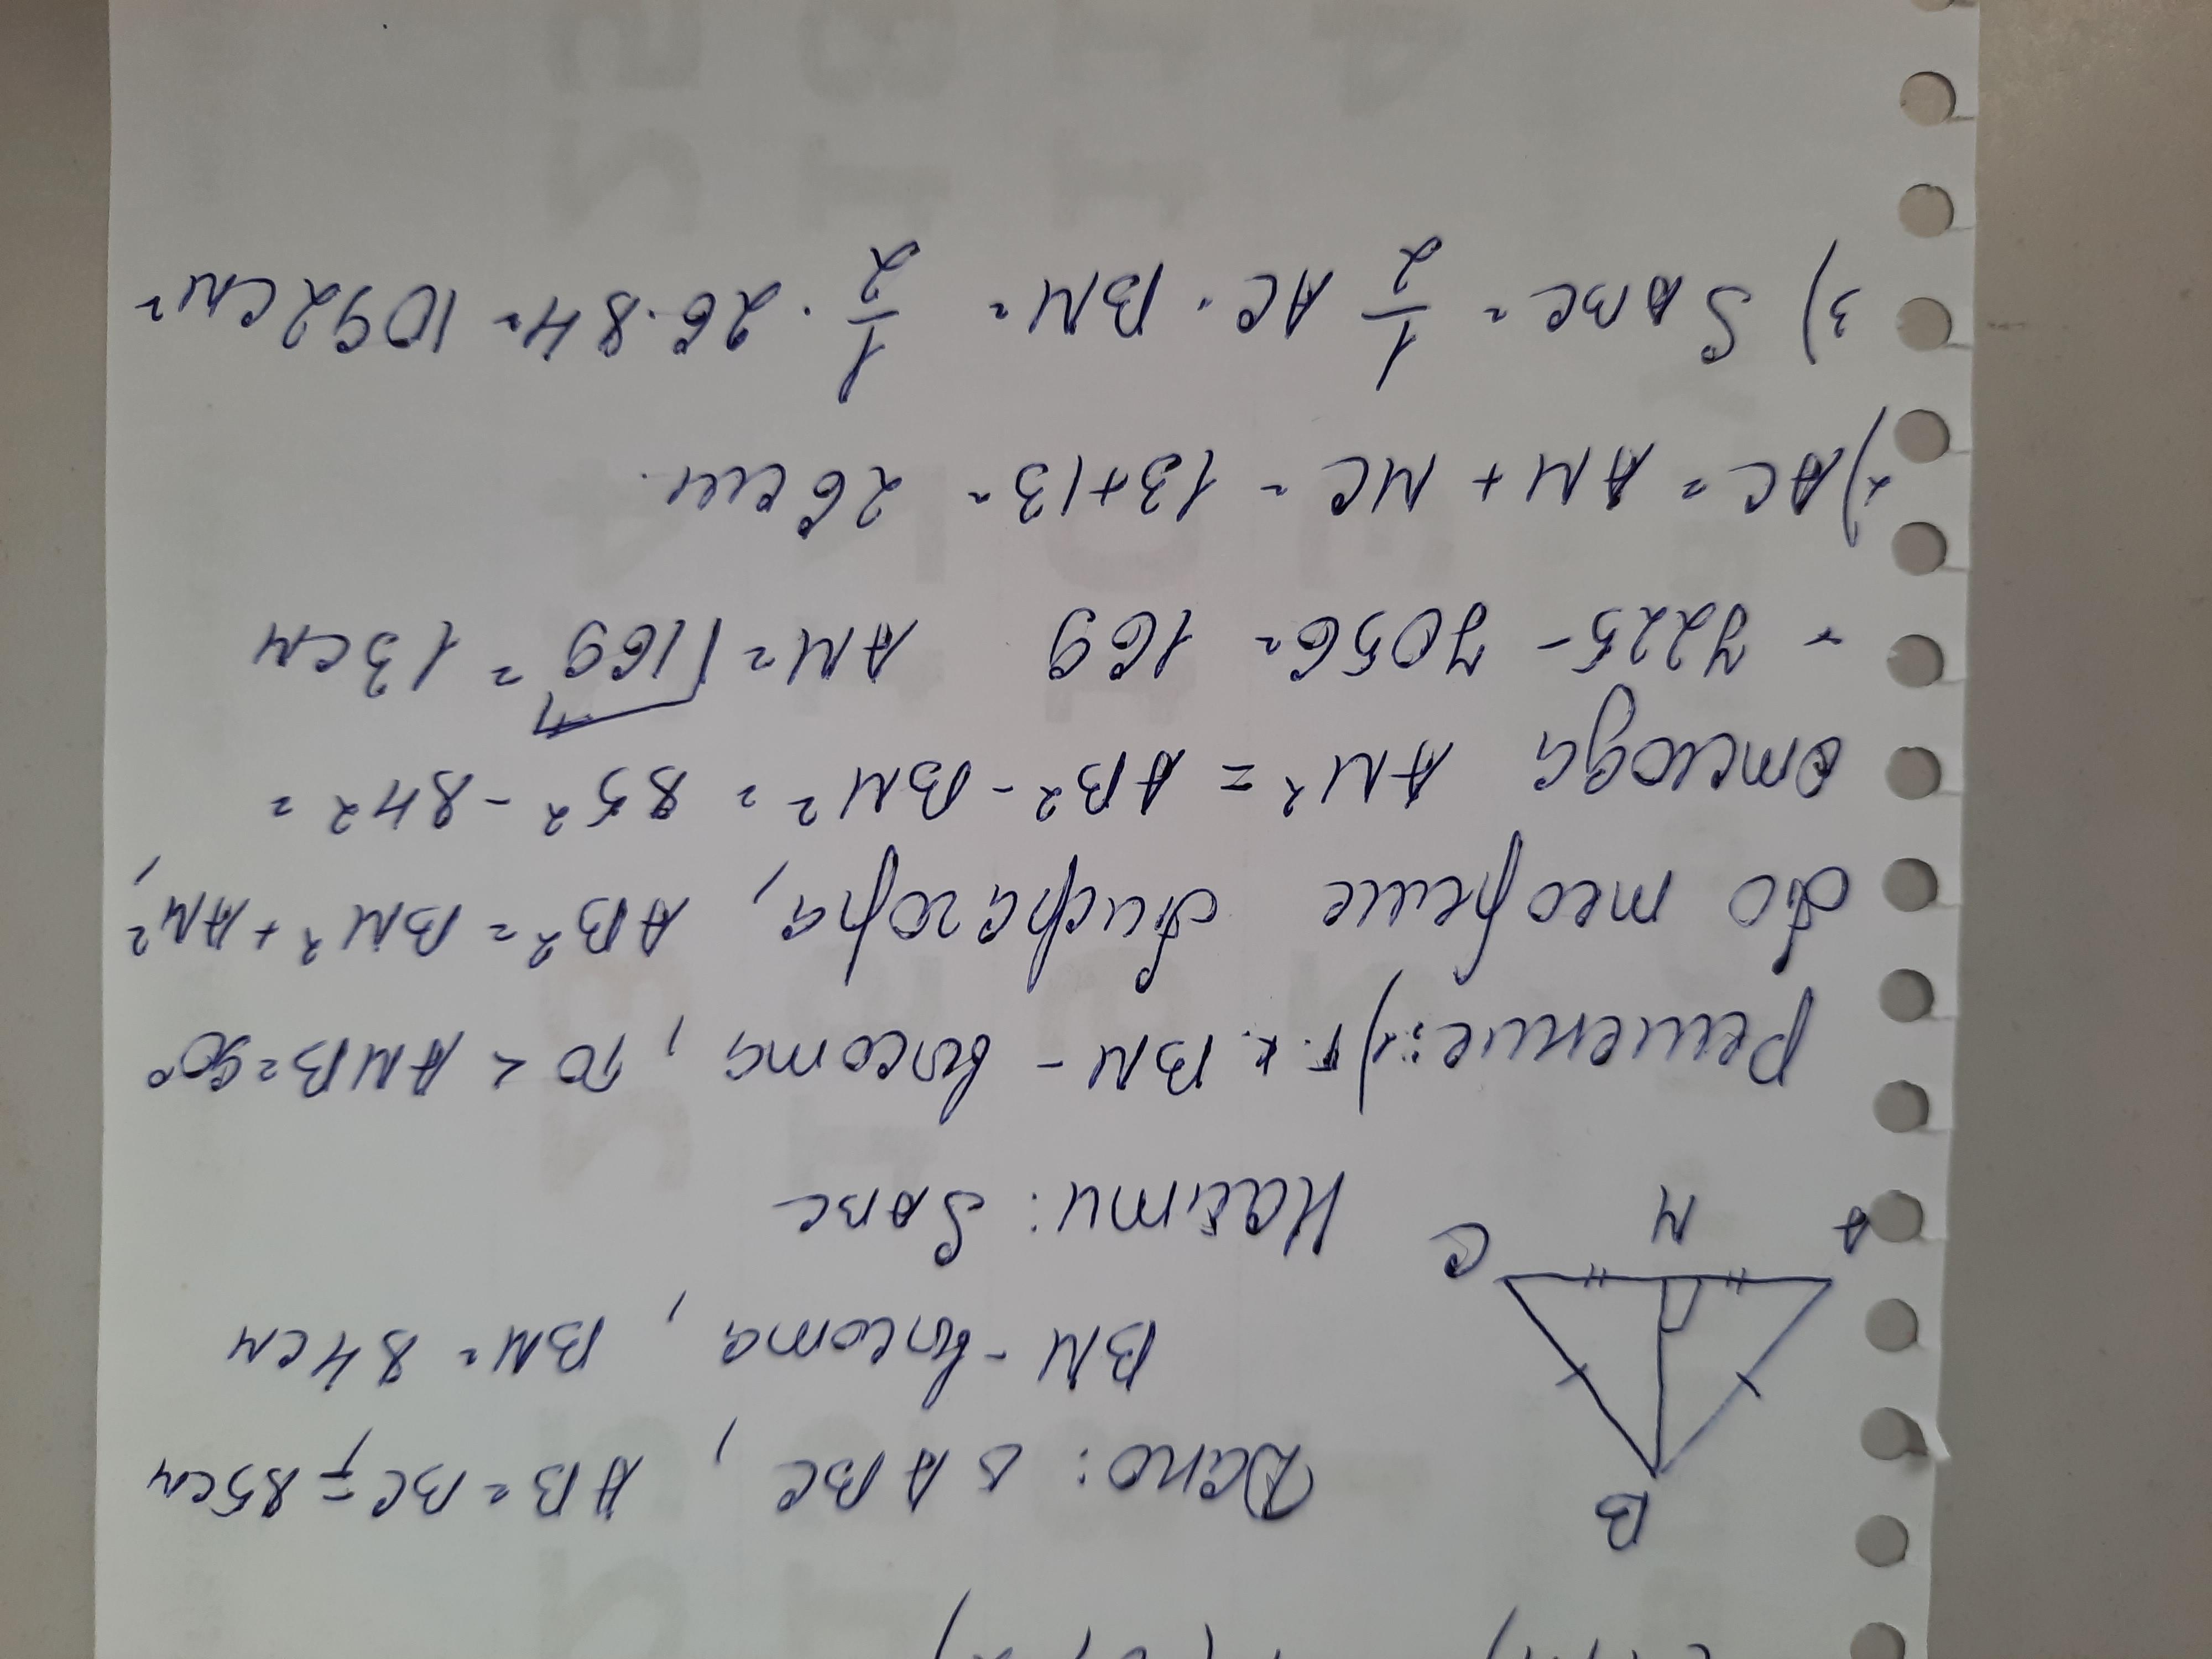 B
Дано: Δ ABC, AB = BC = 85 см
BM - высота, BM = 84 см
A M C
Найти: SABC
Решение: 1) т.к. BM - высота, то < AMB = 90°
По теореме Пифагора, AB² = BM² + AM²,
отсюда AM² = AB² - BM² = 85² - 84² =
= 7225 - 7056 = 169 AM = √169 = 13 см
2) AC = AM + MC = 13 + 13 = 26 см.
3) SABC = 1/2 AC · BM = 1/2 · 26 · 84 = 1092 см²